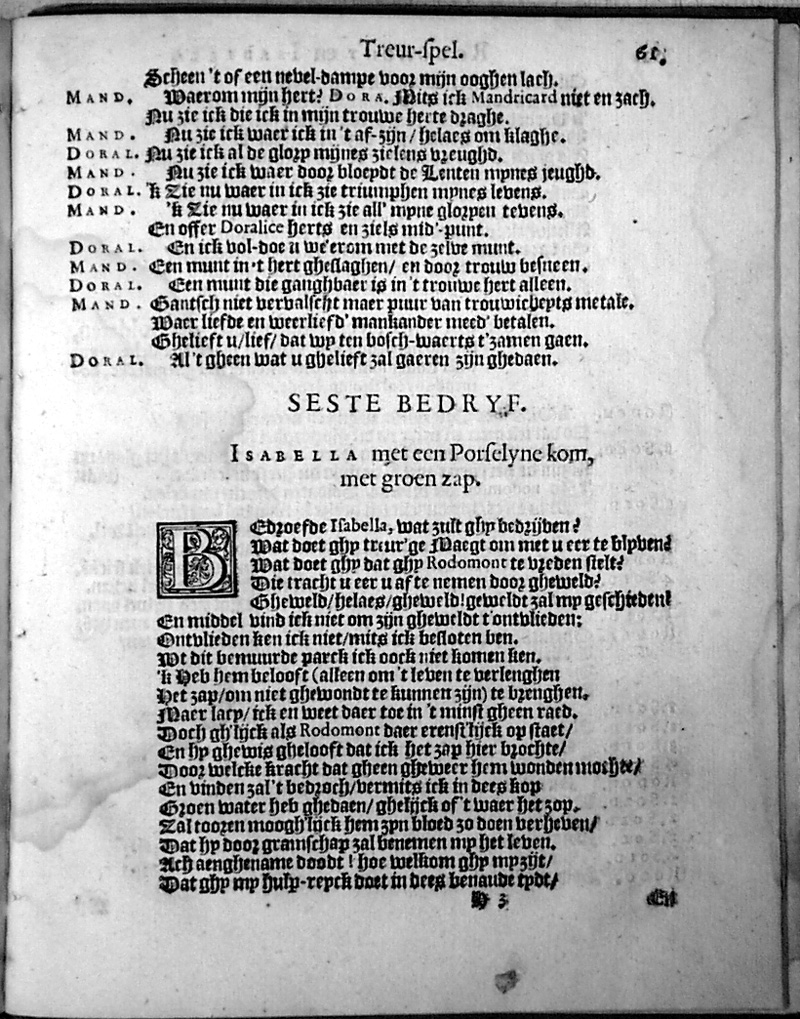 Treur-spel. 61.
Scheen 't of een nevel-dampe voor mijn ooghen lach.
MAND. Waerom mijn hert? DORA. Mits ick Mandricard niet en zach.
Nu zie ick die ick in mijn trouwe herte draghe.
MAND. Nu zie ick waer ick in 't af-zijn / helaes om klaghe.
DORAL. Nu zie ick al de glory mijnes zielens vreughd.
MAND. Nu zie ick waer door bloeydt de Lenten mynes jeughd.
DORAL. 'k Zie nu waer in ick zie triumphen mynes levens.
MAND. 'k Zie nu waer in ick zie all' myne gloryen tevens.
En offer Doralice herts en ziels mid'-punt.
DORAL. En ick vol-doe u we'erom met de zelve munt.
MAND. Een munt in 't hert gheslaghen / en door trouw besneen.
DORAL. Een munt die ganghbaer is in 't trouwe hert alleen.
MAND. Gantsch niet vervalscht maer puur van trouwicheyts metale.
Waer liefde en weerliefd' mankander meed' betalen.
Ghelieft u / lief / dat wy ten bosch-waerts t'zamen gaen.
DORAL. Al 't gheen wat u ghelieft zal gaeren zijn ghedaen.
SESTE BEDRYF.
ISABELLA met een Porselyne kom,
met groen zap.
BEdroefde Isabella, wat zult ghy bedrijven?
Wat doet ghy treur'ge Maegt om met u eer te blyven?
Wat doet ghy dat ghy Rodomont te vreden stelt?
Die tracht u eer u af te nemen door gheweld?
Gheweld / helaes / gheweld! geweldt zal my geschieden!
En middel vind ick niet om zijn gheweldt t'ontvlieden;
Ontvlieden ken ick niet / mits ick besloten ben.
Wt dit bemuurde parck ick oock niet komen ken.
'k Heb hem belooft (alleen om 't leven te verlenghen
Het zap / om niet ghewondt te kunnen zijn) te brenghen.
Maer lacy / ick en weet daer toe in 't minst gheen raed.
Doch gh'lijck als Rodomont daer erenst'lijck op staet /
En hy ghewis ghelooft dat ick het zap hier brochte /
Door welcke kracht dat gheen gheweer hem wonden mochte /
En vinden zal 't bedroch / vermits ick in dees kop
Groen water heb ghedaen / ghelijck of 't waer het zop.
Zal tooren moogh'lijck hem zyn bloed zo doen verheven /
Dat hy door gramschap zal benemen my het leven.
Ach aenghename doodt! hoe welkom ghy my zijt /
Dat ghy my hulp-reyck doet in dees benaude tydt /
H 3 En